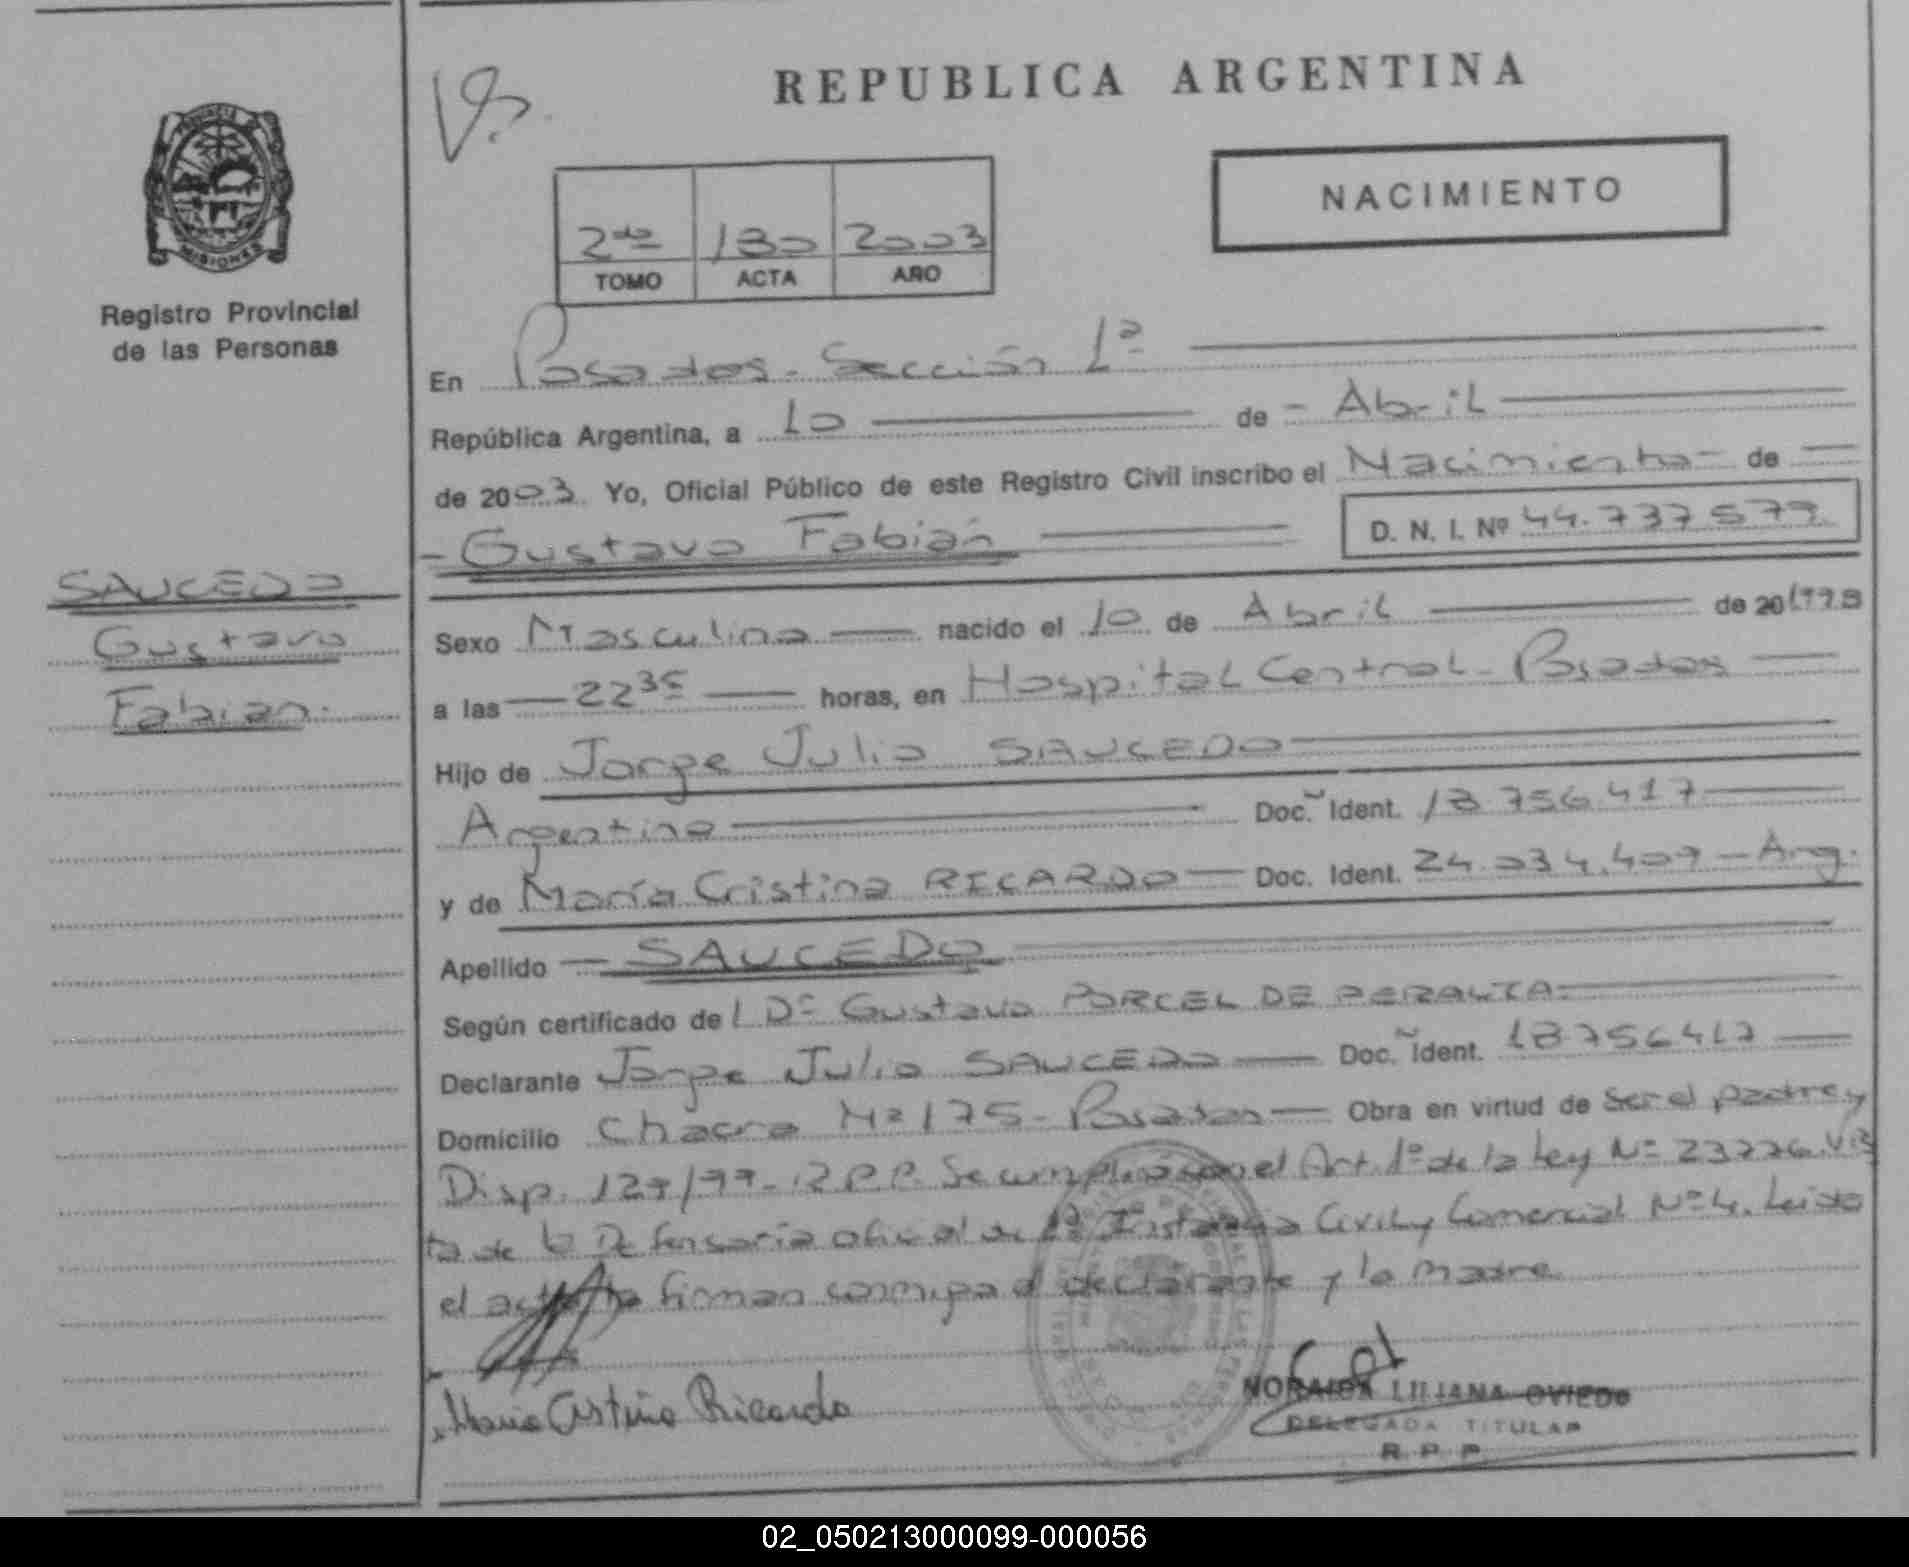 REPUBLICA ARGENTINA
PROVINCIA DE
MISIONES
Registro Provincial
de las Personas
NACIMIENTO
2do 180 2003
TOMO ACTA AÑO
En Posadas - Sección 1ª
República Argentina, a 10 de - Abril
de 2003. Yo, Oficial Público de este Registro Civil inscribo el Nacimiento - de
- Gustavo Fabián
D. N. I. Nº 44.737.579
SAUCEDO
Gustavo
Fabian.
Sexo Masculino nacido el 10 de Abril de 20 1998
a las 22 35 horas, en Hospital Central - Posadas
Hijo de Jorge Julio SAUCEDO
Argentino Doc. Ident. 18.756.417
y de María Cristina RICARDO Doc. Ident. 24.034.407 - Arg.
Apellido SAUCEDO
Según certificado de l Dr Gustavo PORCEL DE PERALTA.
Declarante Jorge Julio SAUCEDO Doc. Ident. 18756417
Domicilio Chacra Nº 175 - Posadas Obra en virtud de Ser el padre y
Disp. 127/99 - R.P.P. Se cumplió con el Art. 1º de la Ley Nº 23776. Vis
ta de la Defensoría oficial de 1ª Instancia Civil y Comercial Nº 4. Leida
el acta la firman conmigo el declarante y la madre
Maria Cristina Ricardo
NORAIDA LILIANA OVIEDO
DELEGADA TITULAR
R. P. P.
02_050213000099-000056